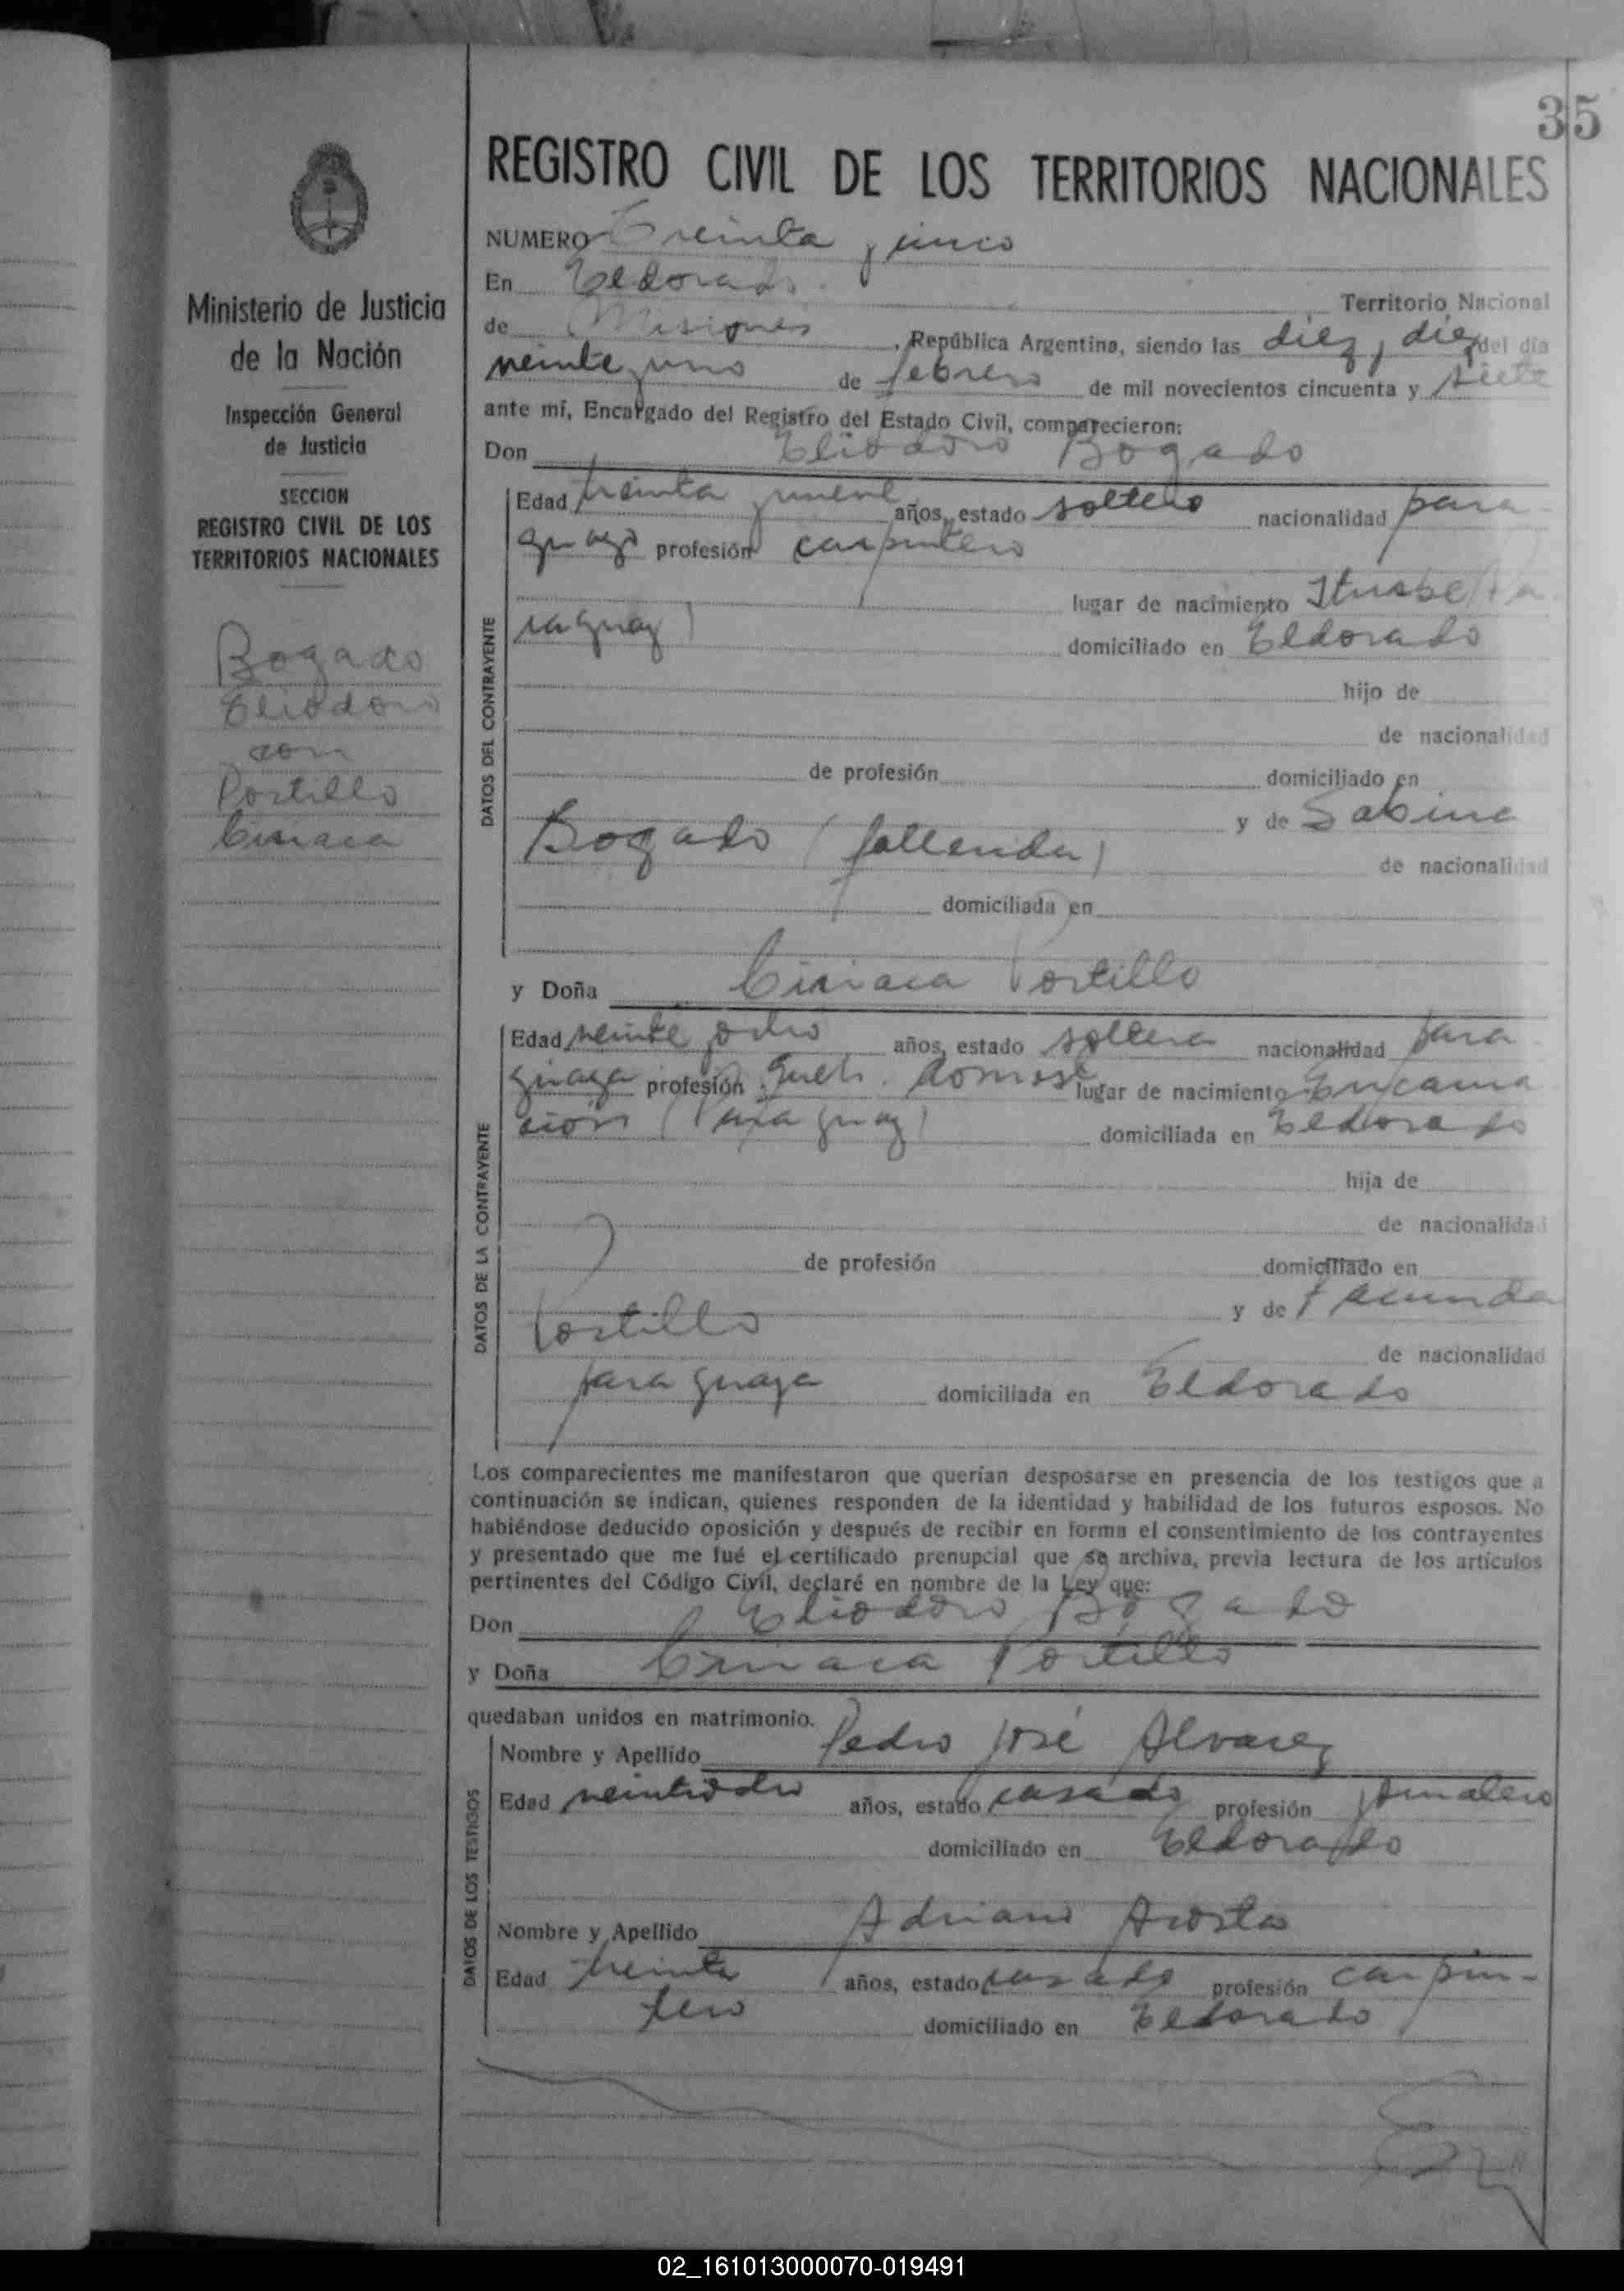 35
REGISTRO CIVIL DE LOS TERRITORIOS NACIONALES
NUMERO Treinta y cinco
En Eldorado Territorio Nacional
de Misiones, República Argentina, siendo las diez y diez del día
veinte y uno de febrero de mil novecientos cincuenta y siete
ante mí, Encargado del Registro del Estado Civil, comparecieron:
Don Eliodoro Bogado
Edad treinta y nueve años, estado soltero nacionalidad para-
guayo profesión carpintero
lugar de nacimiento Iturbe (Pa
raguay) domiciliado en Eldorado
hijo de
de nacionalidad
de profesión domiciliado en
y de Sabina
Bogado (fallecida) de nacionalidad
domiciliada en
y Doña Ciriaca Portillo
Edad veinte y ocho años, estado soltera nacionalidad para-
guaya profesión queh. domest lugar de nacimiento Encarna
ción (Paraguay) domiciliada en Eldorado
hija de
de nacionalidad
de profesión domiciliado en
y de Facunda
Portillo de nacionalidad
paraguaya domiciliada en Eldorado
Los comparecientes me manifestaron que querían desposarse en presencia de los testigos que a
continuación se indican, quienes responden de la identidad y habilidad de los futuros esposos. No
habiéndose deducido oposición y después de recibir en forma el consentimiento de los contrayentes
y presentado que me fué el certificado prenupcial que se archiva, previa lectura de los artículos
pertinentes del Código Civil, declaré en nombre de la Ley que:
Don Eliodoro Bogado
y Doña Ciriaca Portillo
quedaban unidos en matrimonio.
Nombre y Apellido Pedro José Alvarez
Edad veintiocho años, estado casado profesión jornalero
domiciliado en Eldorado
Nombre y Apellido Adriano Acosta
Edad treinta años, estado casado profesión carpin-
tero domiciliado en Eldorado
DATOS DEL CONTRAYENTE
DATOS DE LA CONTRAYENTE
DATOS DE LOS TESTIGOS
Ministerio de Justicia
de la Nación
Inspección General
de Justicia
SECCION
REGISTRO CIVIL DE LOS
TERRITORIOS NACIONALES
Bogado
Eliodoro
con
Portillo
Ciriaca
02_161013000070-019491